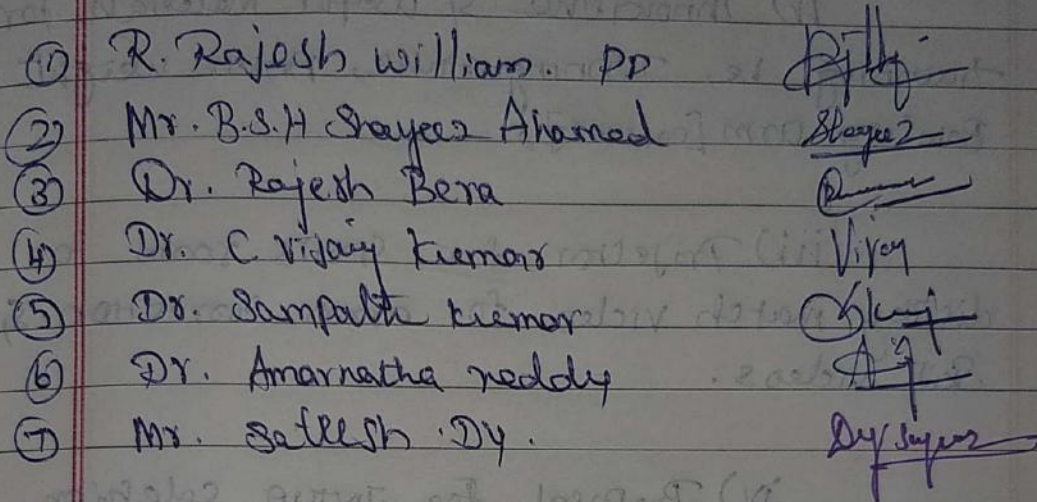 ① R. Rajesh William. PD
② Mr. B.S.H Shayeez Ahamed Shayeez
③ Dr. Rajesh Bera
④ Dr. C Vijay Kumar Vijay
⑤ Dr. Sampath Kumar
⑥ Dr. Amarnatha reddy
⑦ Mr. Sateesh .Dy.